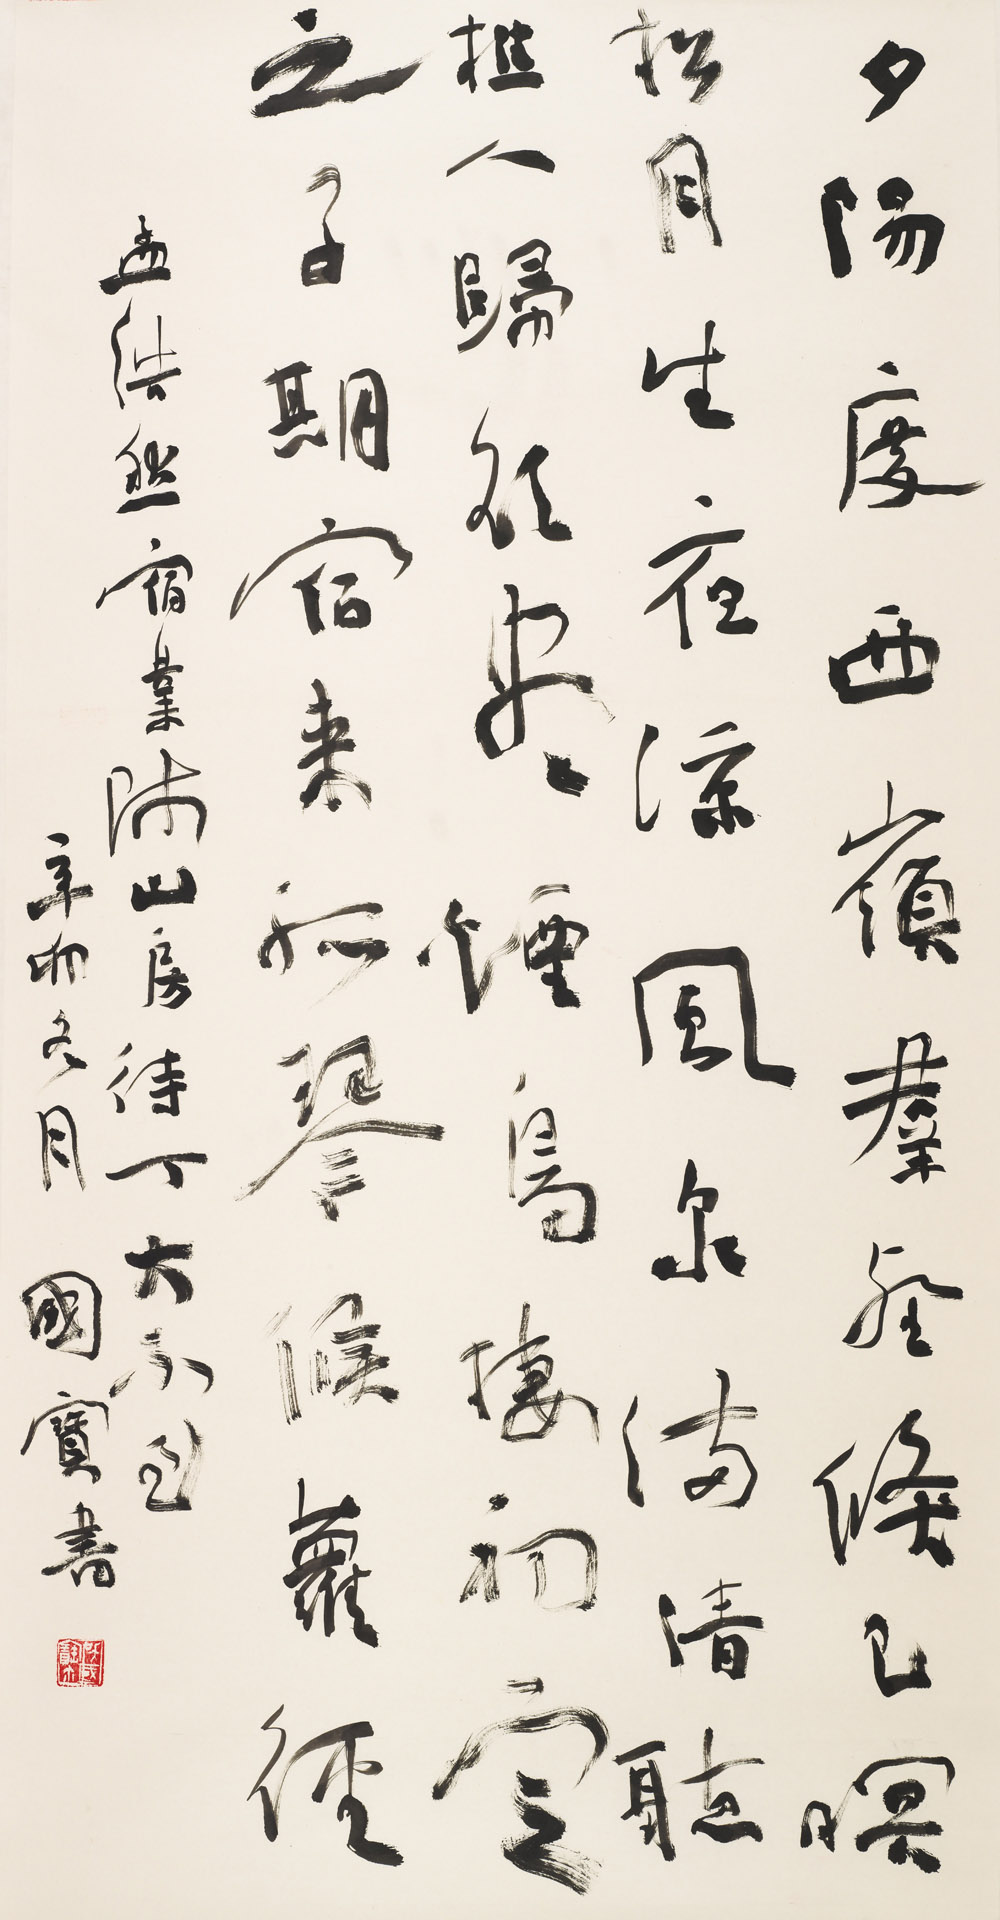 夕陽度西嶺羣壑倏已暝
松月生夜涼風泉滿清聽
樵人歸欲盡煙鳥棲初定
之子期宿來孤琴候蘿徑
孟浩然宿業師山房待丁大不至
辛卯冬月 國寶書